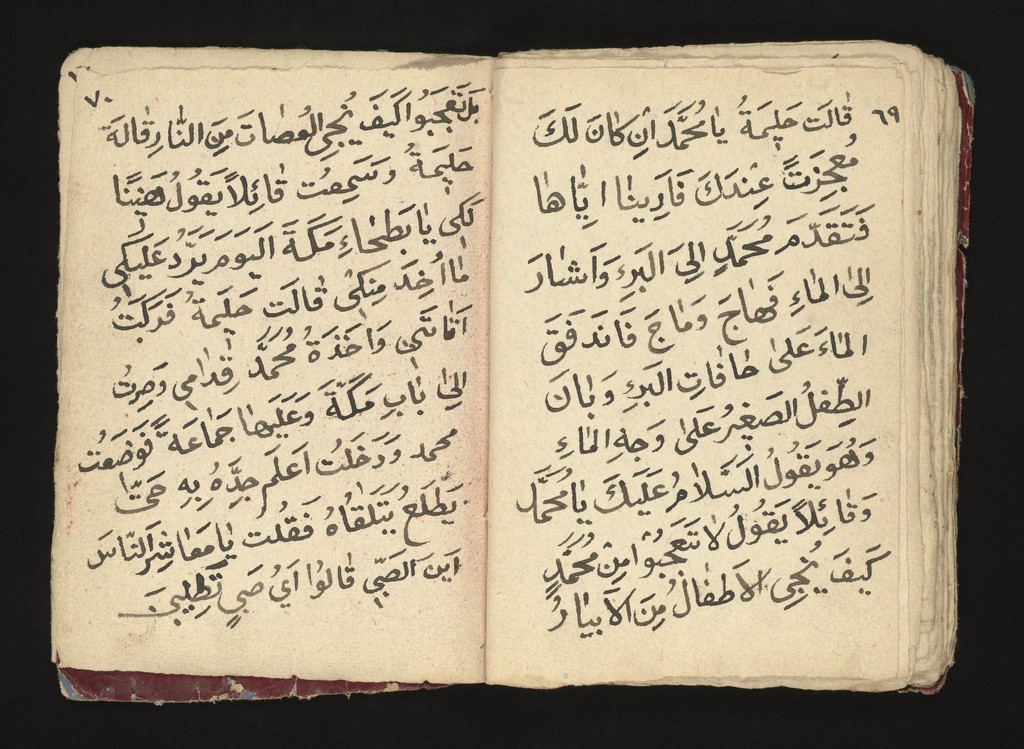 ٦٩
قٰالَت حَلِيمَةُ يٰا مُحَمَّدَ اِن كٰانَ لَكَ
مُعجِزَتً عِندَكَ فَاَرِينٰا اِيّٰاهٰا
فَتَقَدَّمَ مُحَمَّدٍ اِلىَ البَرِءِ وَاَشٰارَ
اِلىٰ المٰاءِ فَهٰاجَ وَمٰاجَ فَاندَفَقَ
المٰاءَ عَلىٰ حٰافاتِ البَرِءِ وَبٰانَ
الطِّفلُ الصَغِيرُ عَلىٰ وَجهِ المٰاءِ
وَهُوَ يَقُولُ السَّلاٰمُ عَلَيكَ يٰا مُحَمَّد
وَقٰائِلاً يَقُولُ لاٰ تَعَجَبُوا مِن مُحَمَّدٍ
كَيفَ يُنجِى الاَطفٰالُ مِنَ الاَبيٰارُ
٧٠
بَل تَعَجَبُوا كَيفَ يُنجِى العُصٰاتَ مِنَ النّٰارِ قٰالَة
حَلِيَمةُ وَسَمِعتُ قٰائِلاً يَقُولُ هَنِيًا
لَكِى يٰا بَطحٰاءِ مَكَةَ اَليَومَ يَرَدُّ عَلَيكِى
مٰا اُخِدَ مِنكِى قٰالَت حَلِيمَةُ فَرَكَبتُ
اَتٰانَتىٖ وَاخَذَةُ مُحَمَّد قِدٰامِى وَصِرتُ
اِلىٰ بٰابِ مَكَّةَ وَعَلَيهٰا جَمٰاعَةً فَوَضَعتُ
محمد وَدَخَلتُ اَعلَم جِدَّهُ بِهِ حَتّٰا
يَطّلَعُ يَتَلَقٰاهُ فَقُلتُ يٰا مَعٰاشِرَ النّٰاسَ
اَينَ الصَبِّي قٰالُوا اَيُ صَبِيٍ تَطلِبِينَ